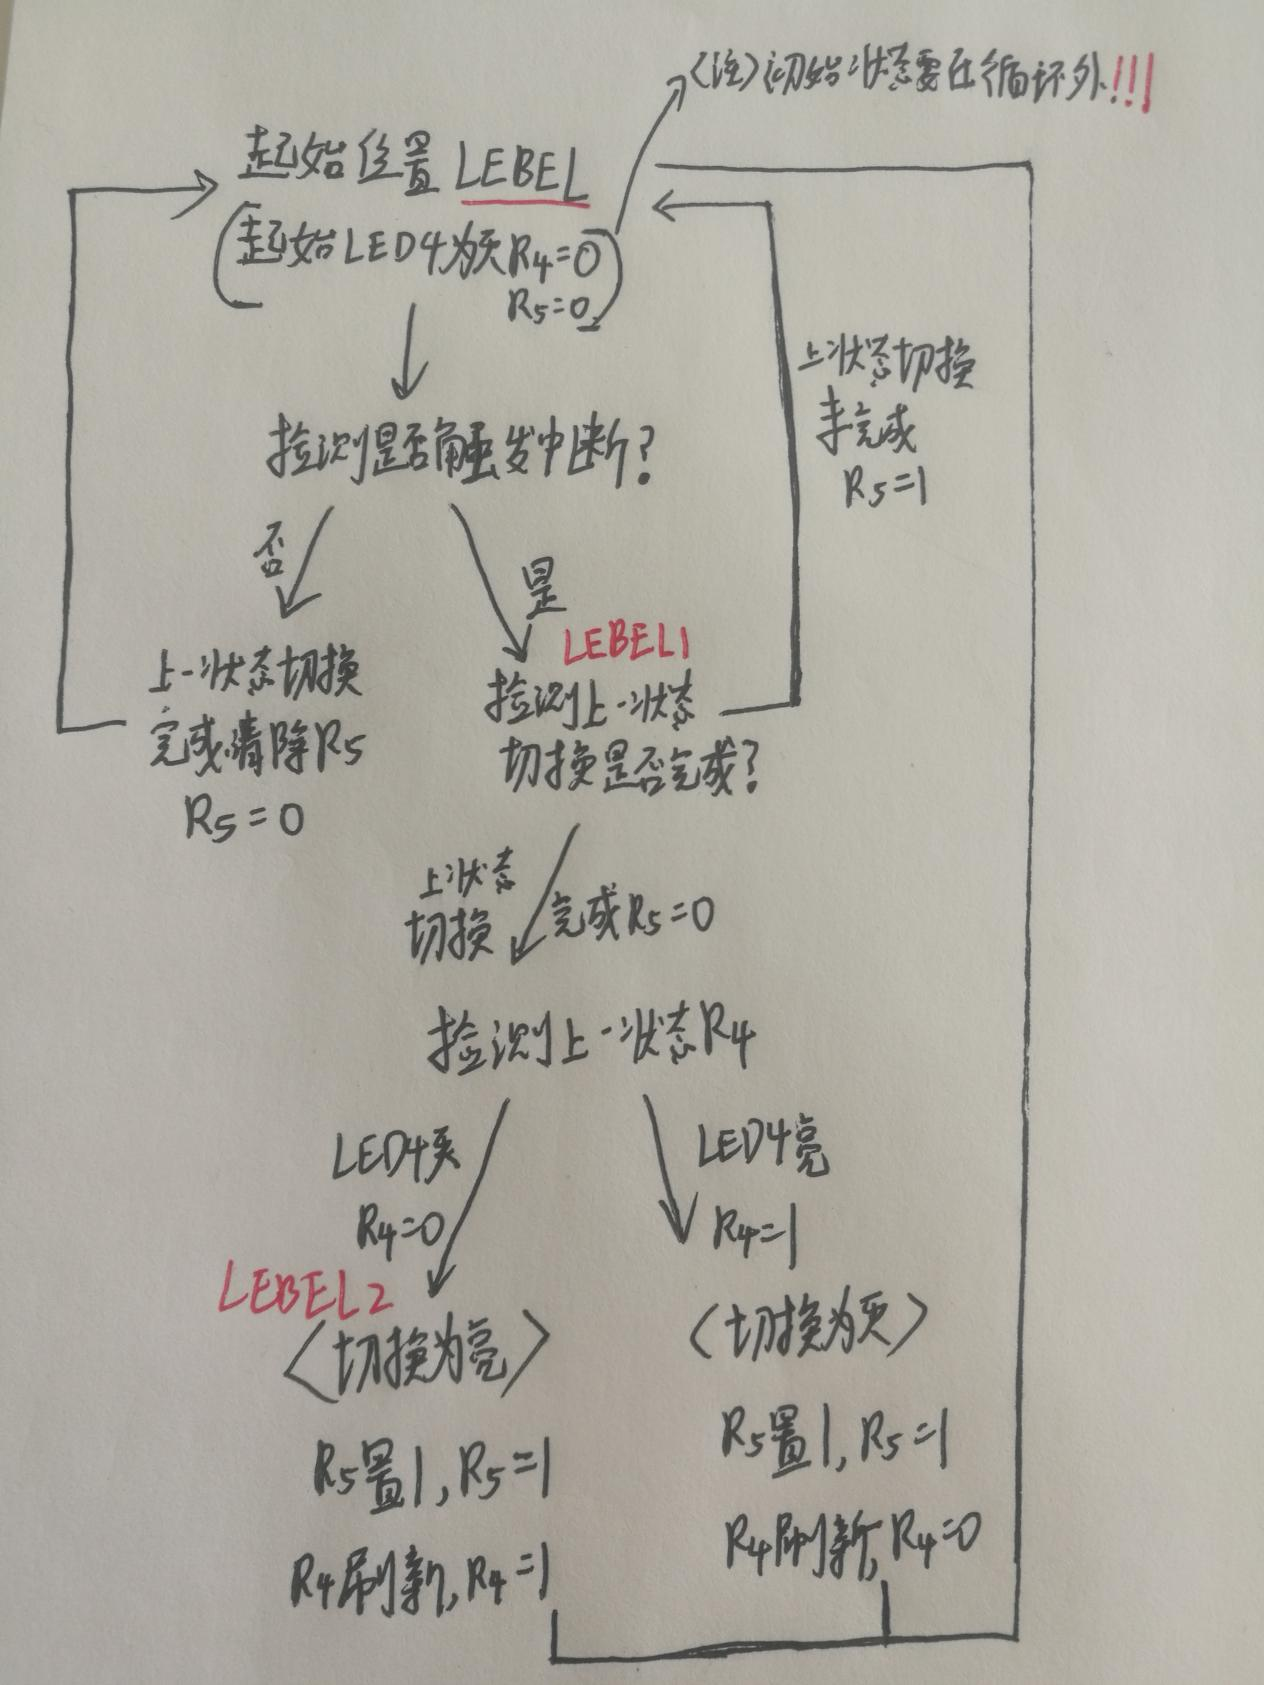 (注)初始状态要在循环外!!!
起始位置 LEBEL
(起始LED4为灭R4=0
R5=0)
检测是否触发中断?
否
是
LEBEL1
上一状态切换
完成,清除R5
R5=0
检测上一状态
切换是否完成?
上状态切换
未完成
R5=1
上状态
切换
完成R5=0
检测上一状态R4
LED4灭
R4=0
LED4亮
R4=1
LEBEL2
〈切换为亮〉
R5置1,R5=1
R4刷新,R4=1
〈切换为灭〉
R5置1,R5=1
R4刷新,R4=0